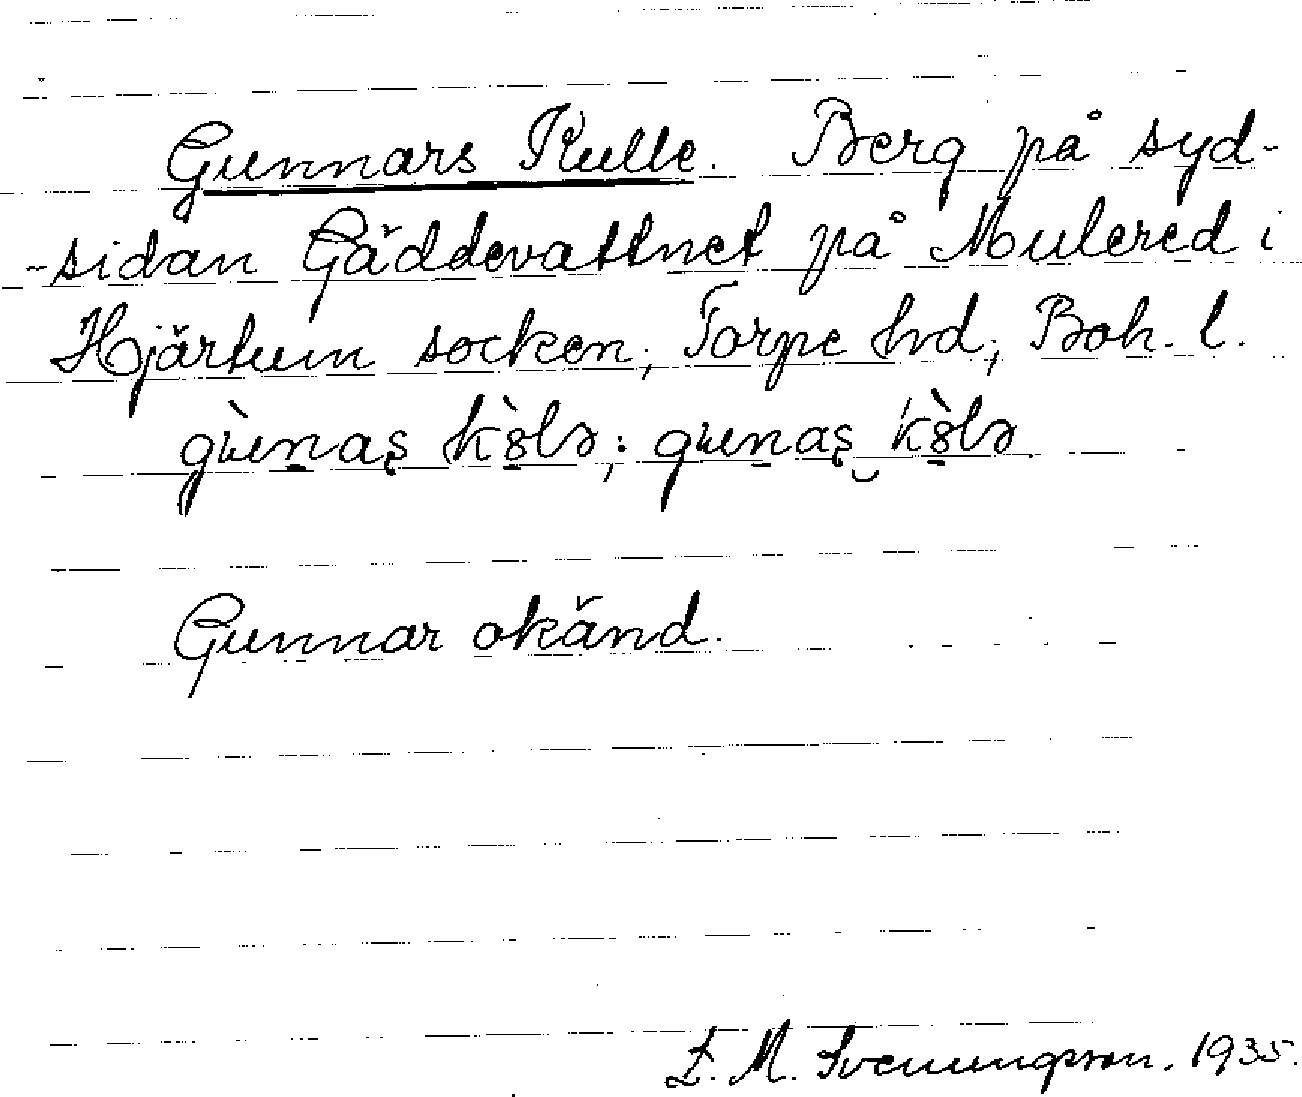 Gunnars Kulle. Berg på syd-
-sidan Gäddevattnet på Mulered i
Hjärtum socken; Torpe hd; Boh. l.
gɯ̀n̠aʂ kò̠lɘ; : gɯn̠aʂ‿kò̠lɘ
Gunnar okänd.
E. M. Svenungsson. 1935.